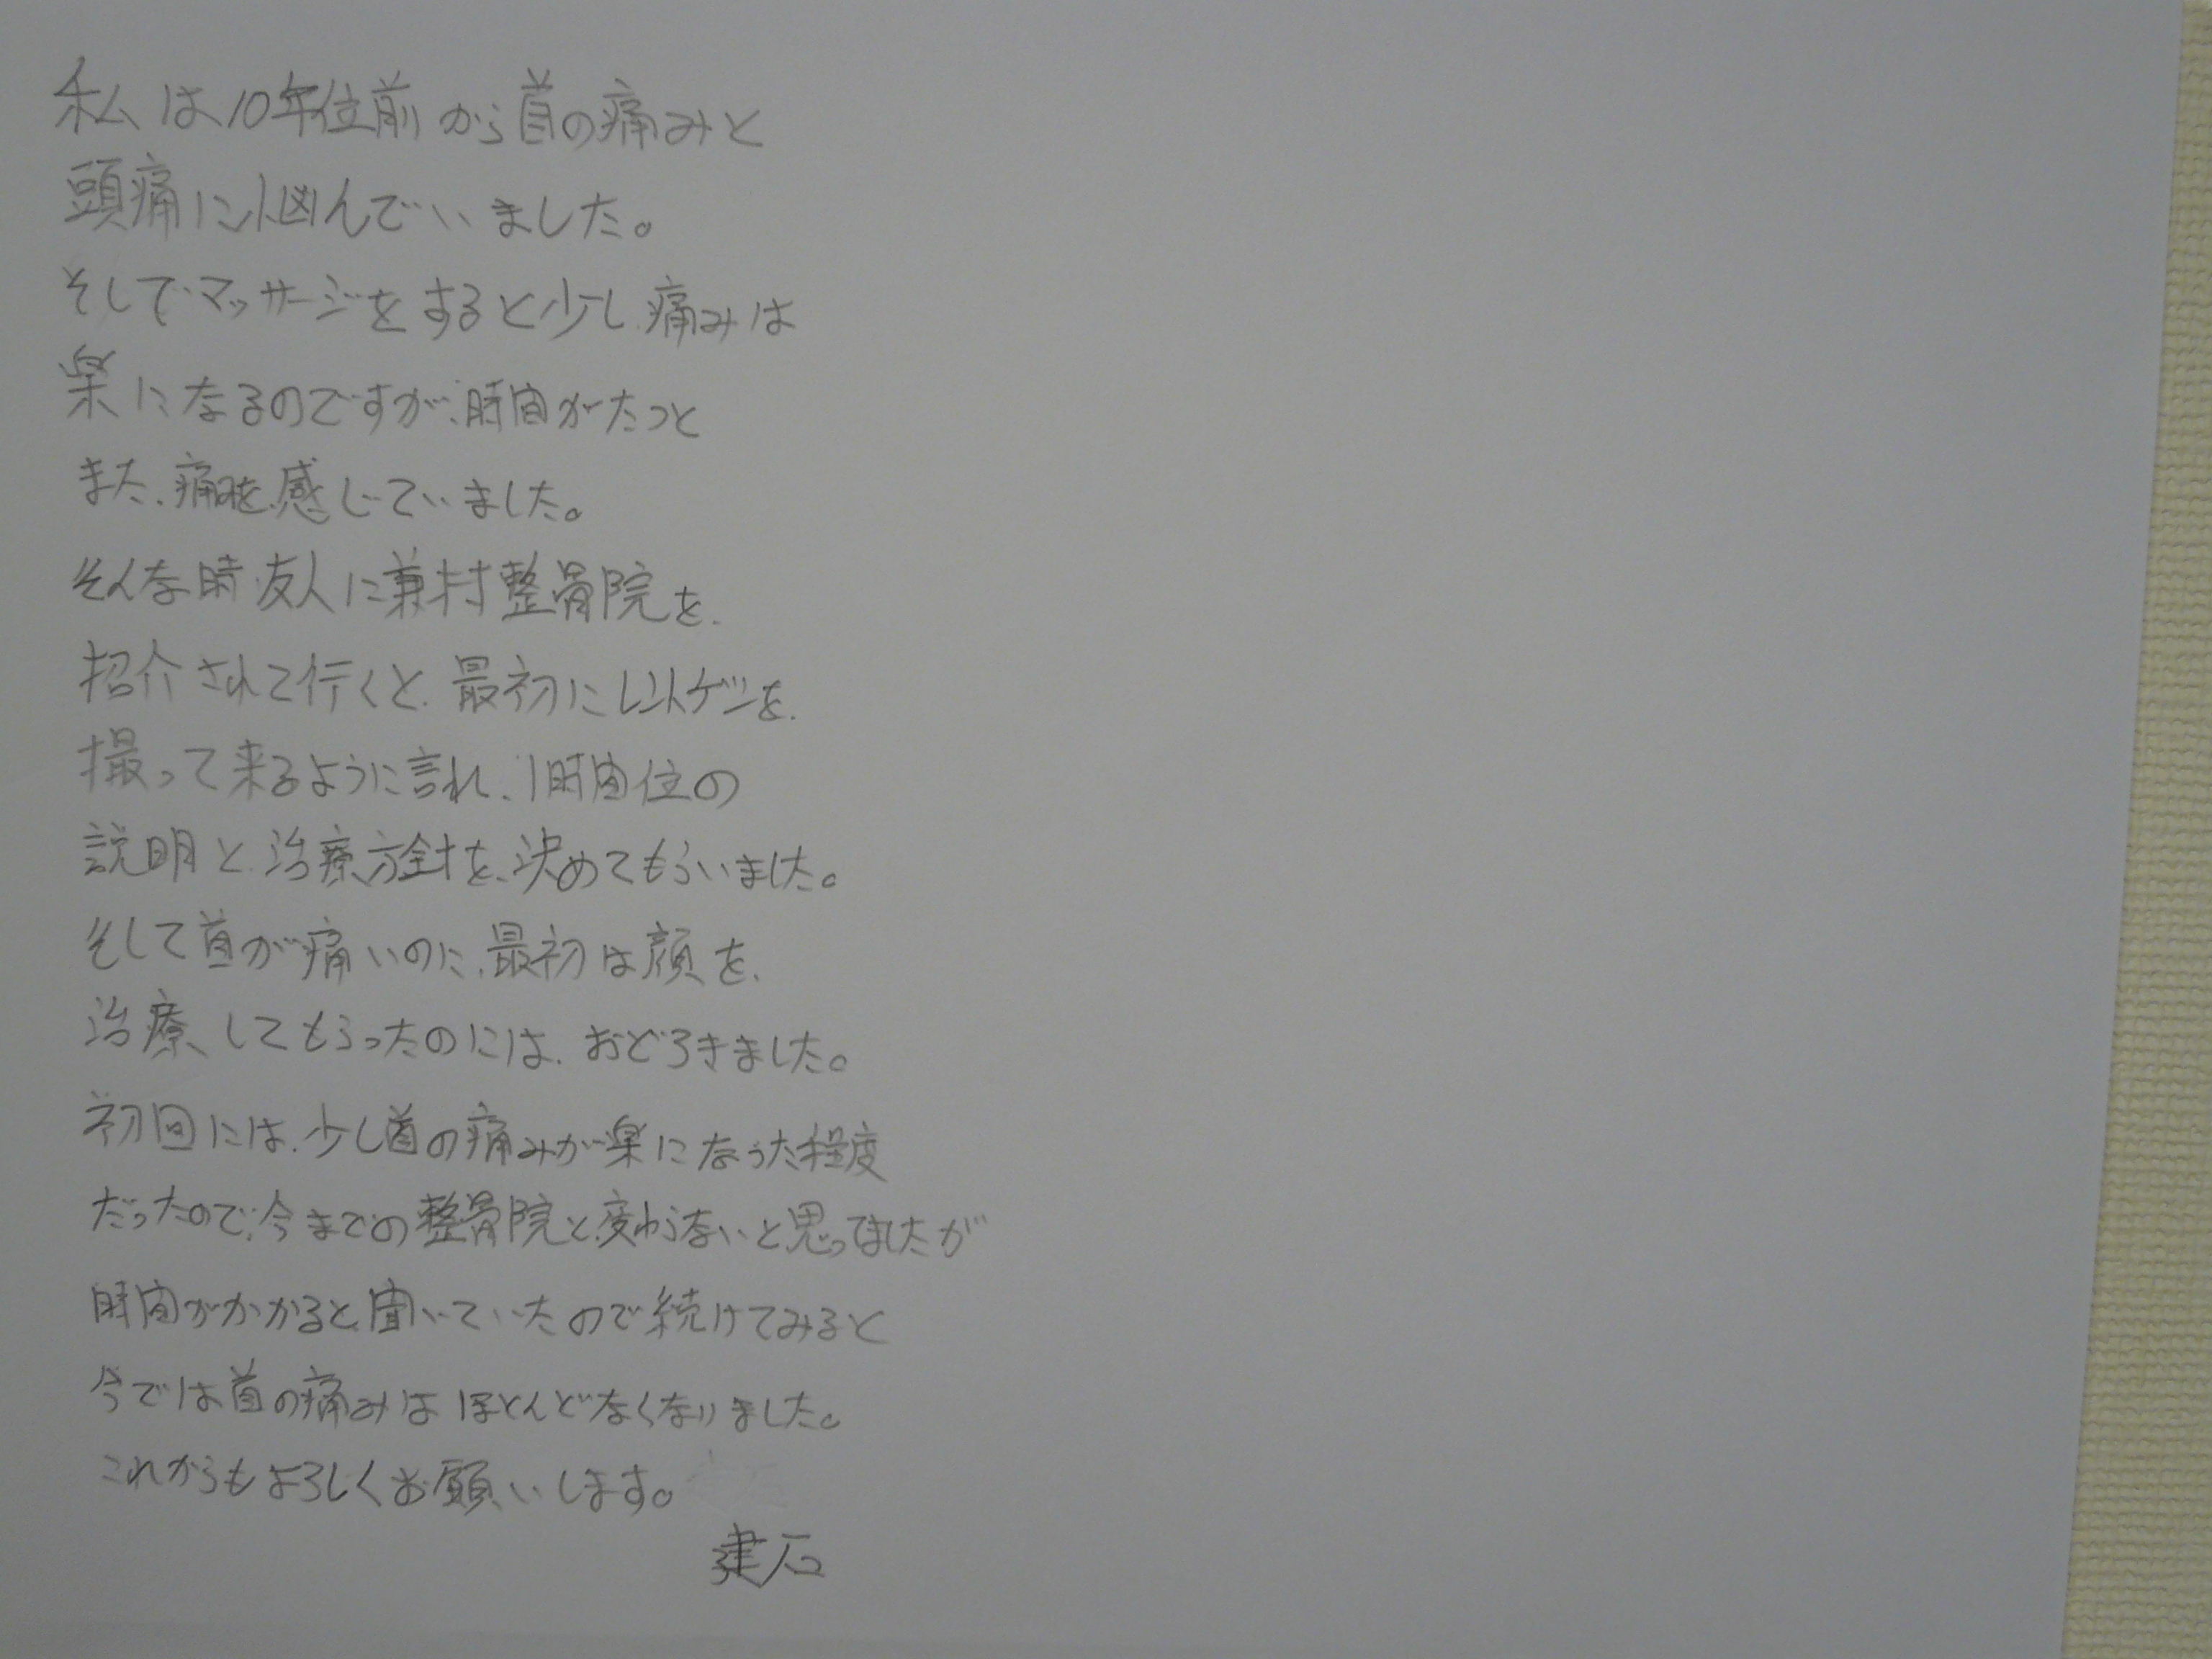 私は10年位前から首の痛みと
頭痛に悩んでいました。
そして、マッサージをすると少し痛みは
楽になるのですが、時間がたつと
また、痛みを感じていました。
そんな時、友人に兼村整骨院を、
紹介されて行くと、最初にレントゲンを、
撮って来るように言れ、1時間位の
説明と治療方針を、決めてもらいました。
そして首が痛いのに、最初は顔を、
治療してもらったのには、おどろきました。
初回には、少し首の痛みが楽になった程度
だったので、今までの整骨院と変わらないと思ってましたが
時間がかかると聞いていたので続けてみると
今では首の痛みはほとんどなくなりました。
これからもよろしくお願いします。
建石